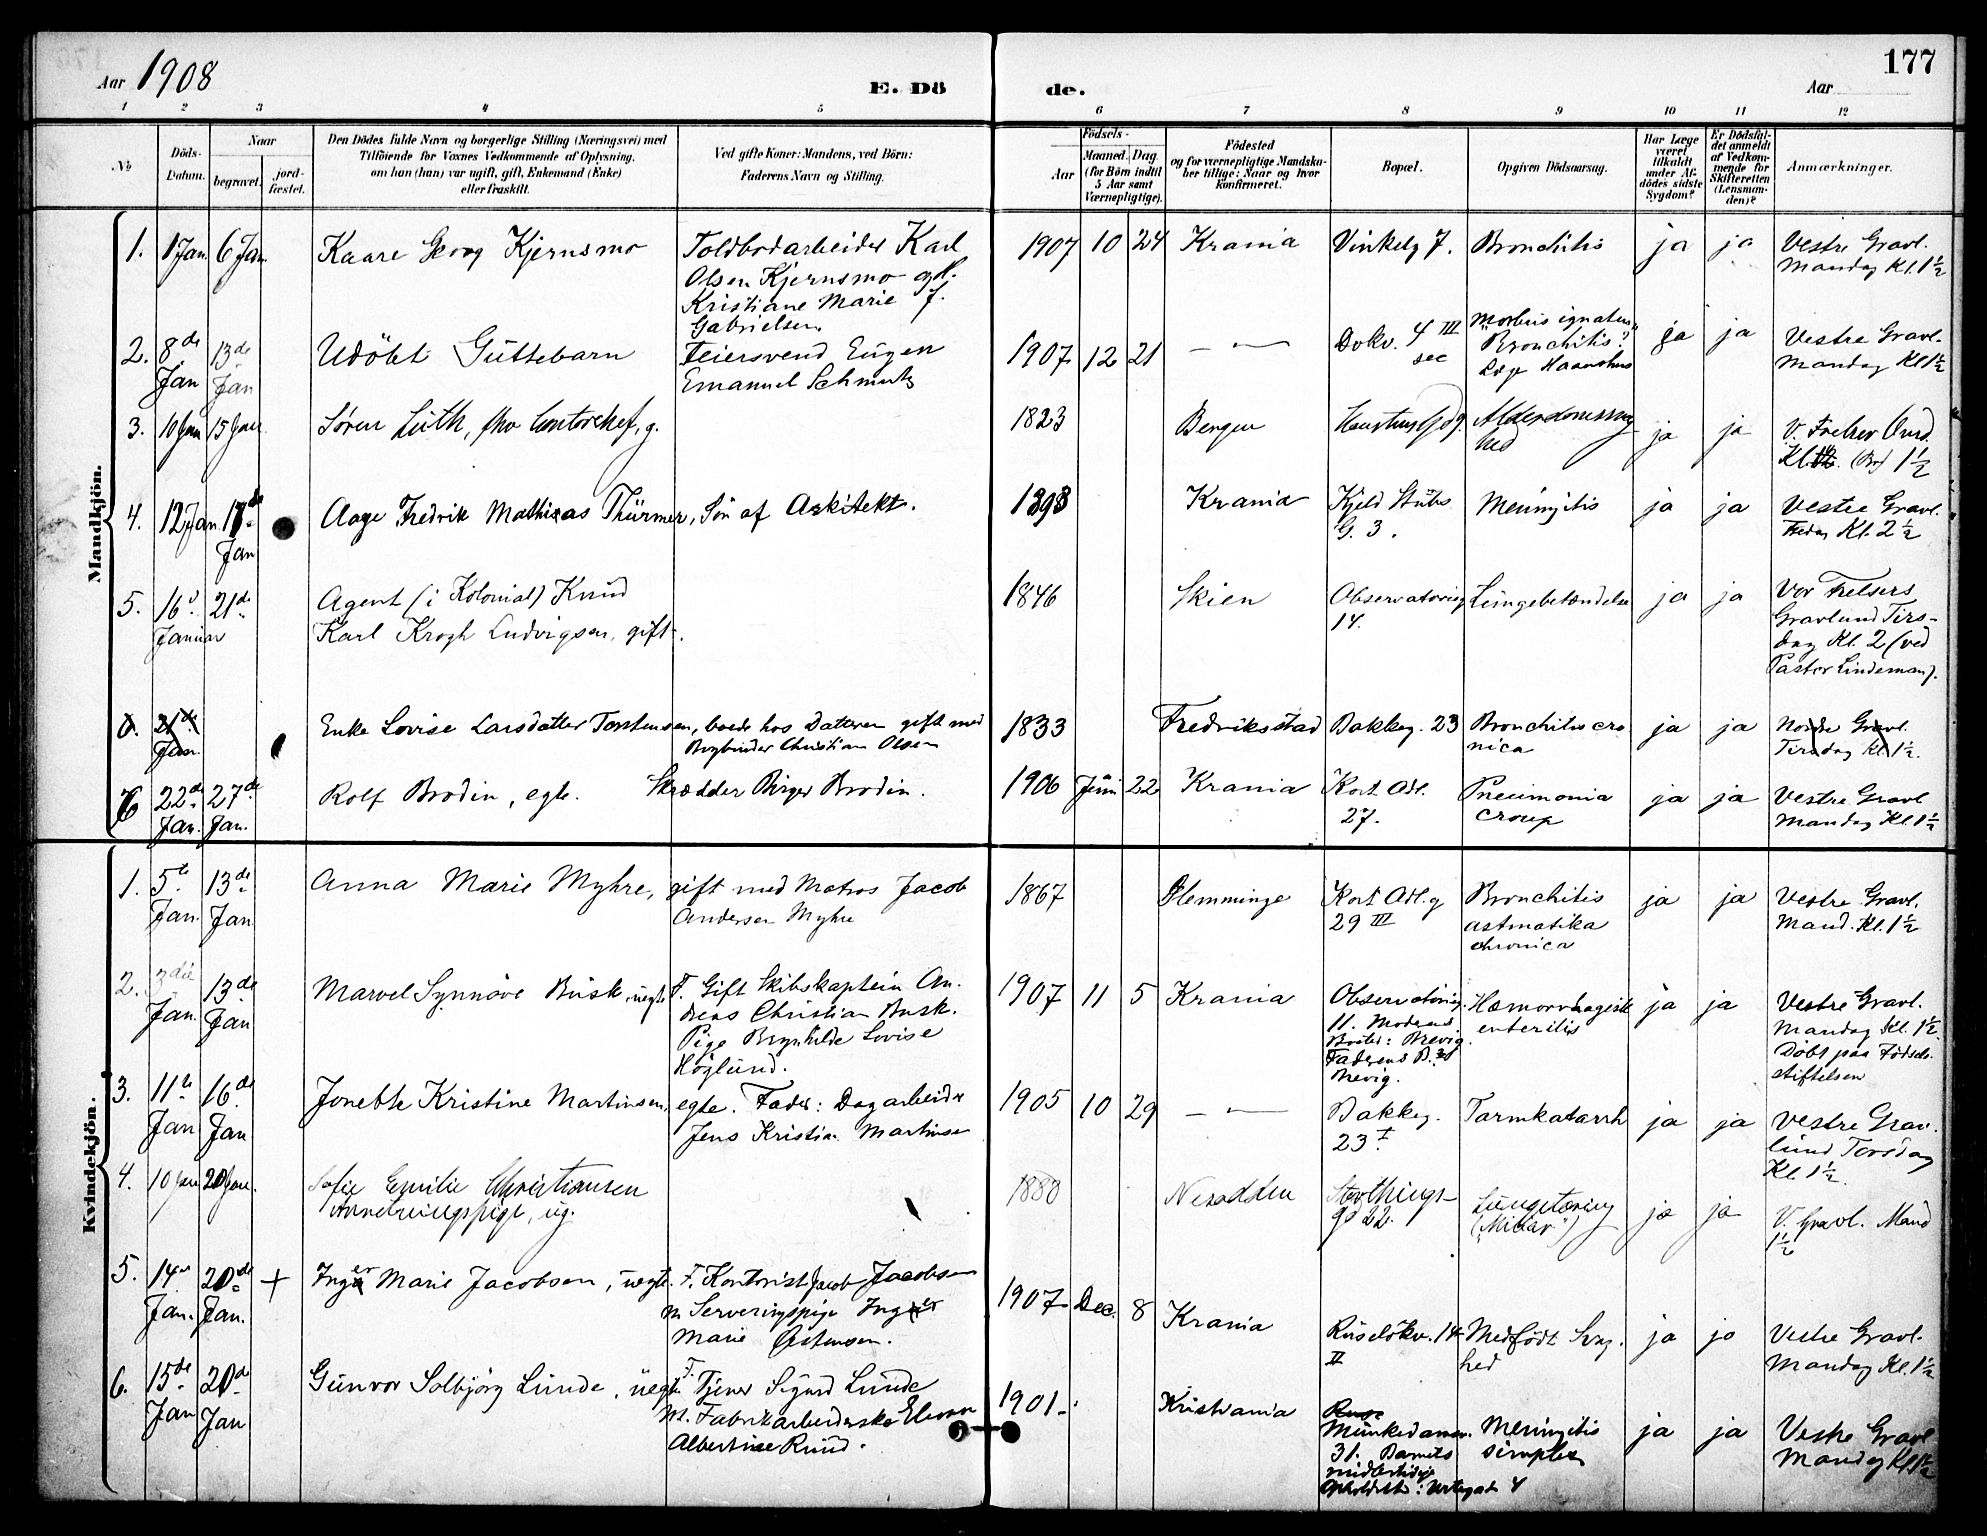 Aar 1908
E. Dö
de.
177
Aar
1 2 3 4 5 6 7 8 9 10 11 12
No
Döds-
Datum.
Naar
begravet.
jord-
fæstet.
Den Dödes fulde Navn og borgerlige Stilling (Næringsvei) med
Tilföiende for Voxnes Vedkommende af Oplysning,
om hun (han) var ugift, gift, Enkemand (Enke)
eller fraskilt.
Ved gifte Koner: Mandens, ved Börn:
Faderens Navn og Stilling.
Födsels-
Aar
Maaned. Dag.
(for Börn indtil
5 Aar samt
Værnepligtige).
Födested
og for værnepligtige Mandska-
ber tillige: Naar og hvor
konfirmeret.
Bopæl.
Opgiven Dödsaarsag.
Har Læge
været
tilkaldt
under Af-
dödes sidste
Sygdom?
Er Dödsfal-
det anmeldt
af Vedkom-
mende for
Skifteretten
(Lensman-
den)?
Anmærkninger.
Mandkjön.
1. 1 Jan. 6 Jan Kaare Georg Kjernsmo Toldbodarbeider Karl
Olsen Kjernsmo og H.
Kristiane Marie f.
Gabrielsen
1907 10 24 Krania Vinkelg 7. Bronchitis ja ja Vestre Gravl.
Mandag Kl. 1½
2. 8de Jan 13de Jan Udöbt Guttebarn Feiersvend Eugen
Emanuel Schmutz
1907 12 21 — " — Dokv. 4 III
"Bronchitis?"
ja ja Vestre Gravl.
Mandag Kl 1½
3. 10 Jan 15 Jan Sören Lüth, g.
1823 Bergen ja ja
1½
4. 12 Jan. 17de Jan Aage Fredrik Mathias Thürmer, Sön af Arkitekt.
1893 Krania Kjeld Stubs
G. 3. Meningitis ja ja Vestre Gravl.
Fredag Kl. 2½
5. 16 21de
Januar
Agent (i Kolonial) Knud
Karl Krogh Ludvigsen, gift.
1846 Skien Observatorieg
14. Lungebetændelse ja ja Vor Frelsers
Gravlund Tirs-
dag Kl. 2 (ved
Pastor Lindeman).
6. 21de
Jan. Enke Lovise Larsdatter Torstensen, boede hos Datteren gift med
Bogbinder Christian Olsen
1833 Fredriksstad Bakkeg. 23 Bronchitis cro
nica ja ja Nordre Gravl.
Tirsdag Kl. 1½.
6 22de Jan. 27de Jan. Rolf Brodin, egte. Skrædder Birger Brodin.
1906 Juni 22 Krania Kort Adl.
27. Pneumonia
croup ja ja Vestre Gravl
Mandag Kl. 1½
Kvindekjön.
1. 5te Jan. 13de Jan Anna Marie Myhre, gift med Matros Jacob
Andersen Myhre
1867 Slemminge Kort Adl.g
29 III Bronchitis
astmatika
chronica ja ja Vestre Gravl.
Mand. Kl. 1½
2. 3die Jan. 13de Jan Marvel Synnöve Busk, uegte F. Gift Skibskaptein An-
dreas Christian Busk.
Pige Brynhilde Lovise
Höglund.
1907 11 5 Krania Observatorieg.
11. Moderens
Bosted: Brevig.
Faderens B.
Brevig.
Hæmorrhagisk
enteritis ja ja Vestre Gravl.
Mandag Kl. 1½
Döbt paa Födsels-
stiftelsen
3. 11te Jan 16de Jan Jonette Kristine Martinsen, egte. Fader: Dagarbeider
Jens Kristian Martinsen
1905 10 29 — " — Bakkeg.
23 I Tarmkatarrh ja ja Vestre Grav-
lund Torsdag
Kl. 1½.
4. 10 Jan 20 Jan. Sofie Emilie Christiansen
ug.
1880 Nesodden Storthings-
gd 22. Lungetæring
("Miliær") ja ja V. Gravl. Mand
1½
5. 14de Jan. 20de Jan. + Inger Marie Jacobsen, uegte. F. Kontorist Jacob Jacobsen
M Serveringspige Inger
Marie Östensen.
1907 Dec. 8 Krania Ruselökv. 14
II Medfödt Svag-
hed ja ja Vestre Gravl.
Mandag Kl. 1½
6. 15de Jan 20de Jan Gunvor Solbjörg Lunde, uegte F. Tjener Sigurd Lunde
M. Fabrikarbeiderske Elenor
Albertine Ruud.
1901. Kristiania
Munkedamsv.
31. Barnets
midlertidige
Opholdsst: Vestegat 4
Meningitis
simplex ja ja Vestre Gravl
Mandag Kl 1½